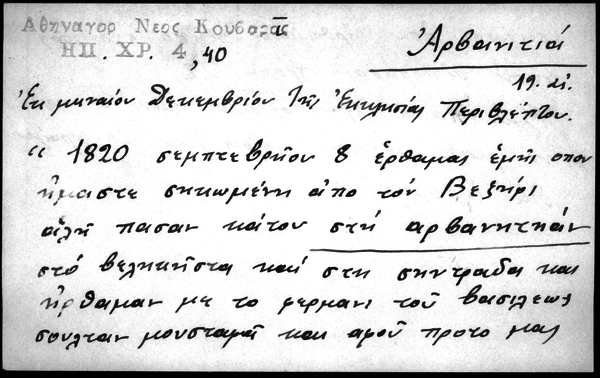 Αθηναγορ Νεος Κουβαρᾶς
ΗΠ. ΧΡ. 4, 40
Ἀρβανιτιά
19. αἰ.
Ἐκ μηναίου Δεκεμβρίου τῆς Ἐκκλησίας Περιβλέπτου.
“ 1820 σεμπτεβρήου 8 ἐρθαμαι ἐμῆς οπου
ἤμαστε σηκωμένη ἀπο τὸν Βεζήρι
ἀλῆ πασαν κάτου στή αρβανητηάν
στό βεληκῆστα καί στη σηντράδα και
ἤρθαμαν με το φερμανι τοῦ βασιλεως
σουλταν μουσταφᾶ και αφοῦ προτο μας